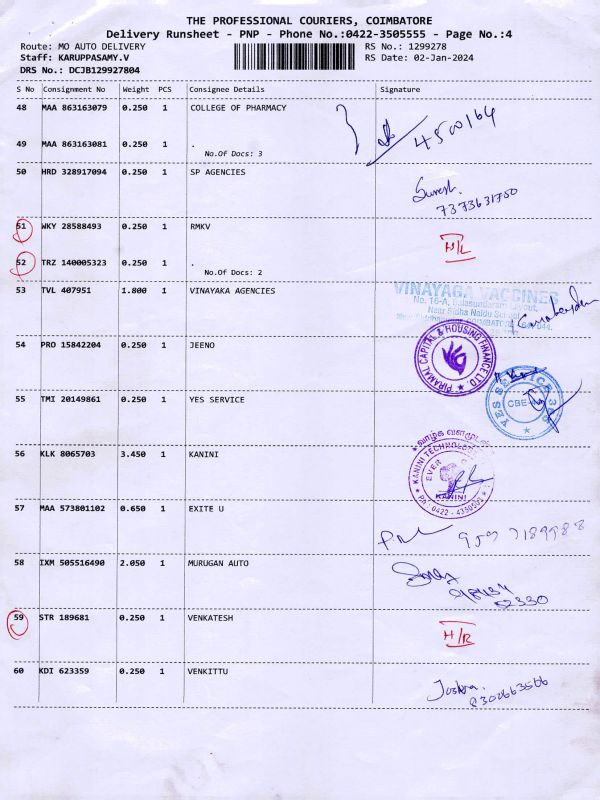 THE PROFESSIONAL COURIERS, COIMBATORE
Delivery Runsheet - PNP - Phone No.:0422-3505555 - Page No.:4
Route: MO AUTO DELIVERY RS No.: 1299278
Staff: KARUPPASAMY.V RS Date: 02-Jan-2024
DRS No.: DCJB129927804
S No Consignment No Weight PCS Consignee Details Signature
48 MAA 863163079 0.250 1 COLLEGE OF PHARMACY
4500164
49 MAA 863163081 0.250 1 .
No.Of Docs: 3
50 HRD 328917094 0.250 1 SP AGENCIES
Suresh.
7373631750
51 WKY 28588493 0.250 1 RMKV
H/L
52 TRZ 140005323 0.250 1 .
No.Of Docs: 2
53 TVL 407951 1.800 1 VINAYAKA AGENCIES
VINAYAGA VACCINES
No. 16-A, Balasundaram Layout,
Near Sidha Naidu School
54 PRO 15842204 0.250 1 JEENO
PIRAMAL CAPITAL & HOUSING FINANCE LTD
55 TMI 20149861 0.250 1 YES SERVICE
YES SERVICE 365
CBE
56 KLK 8065703 3.450 1 KANINI
வாழ்க வளமுடன்
KANINI TECHNOLOGY
EVER
KANINI
Ph: 0422 - 4350502
57 MAA 573801102 0.650 1 EXITE U
58 IXM 505516490 2.050 1 MURUGAN AUTO
98434
02330
59 STR 189681 0.250 1 VENKATESH
H/R
60 KDI 623359 0.250 1 VENKITTU
8300663566